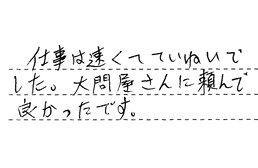 仕事は速くてていねいで
した。大問屋さんに頼んで
良かったです。